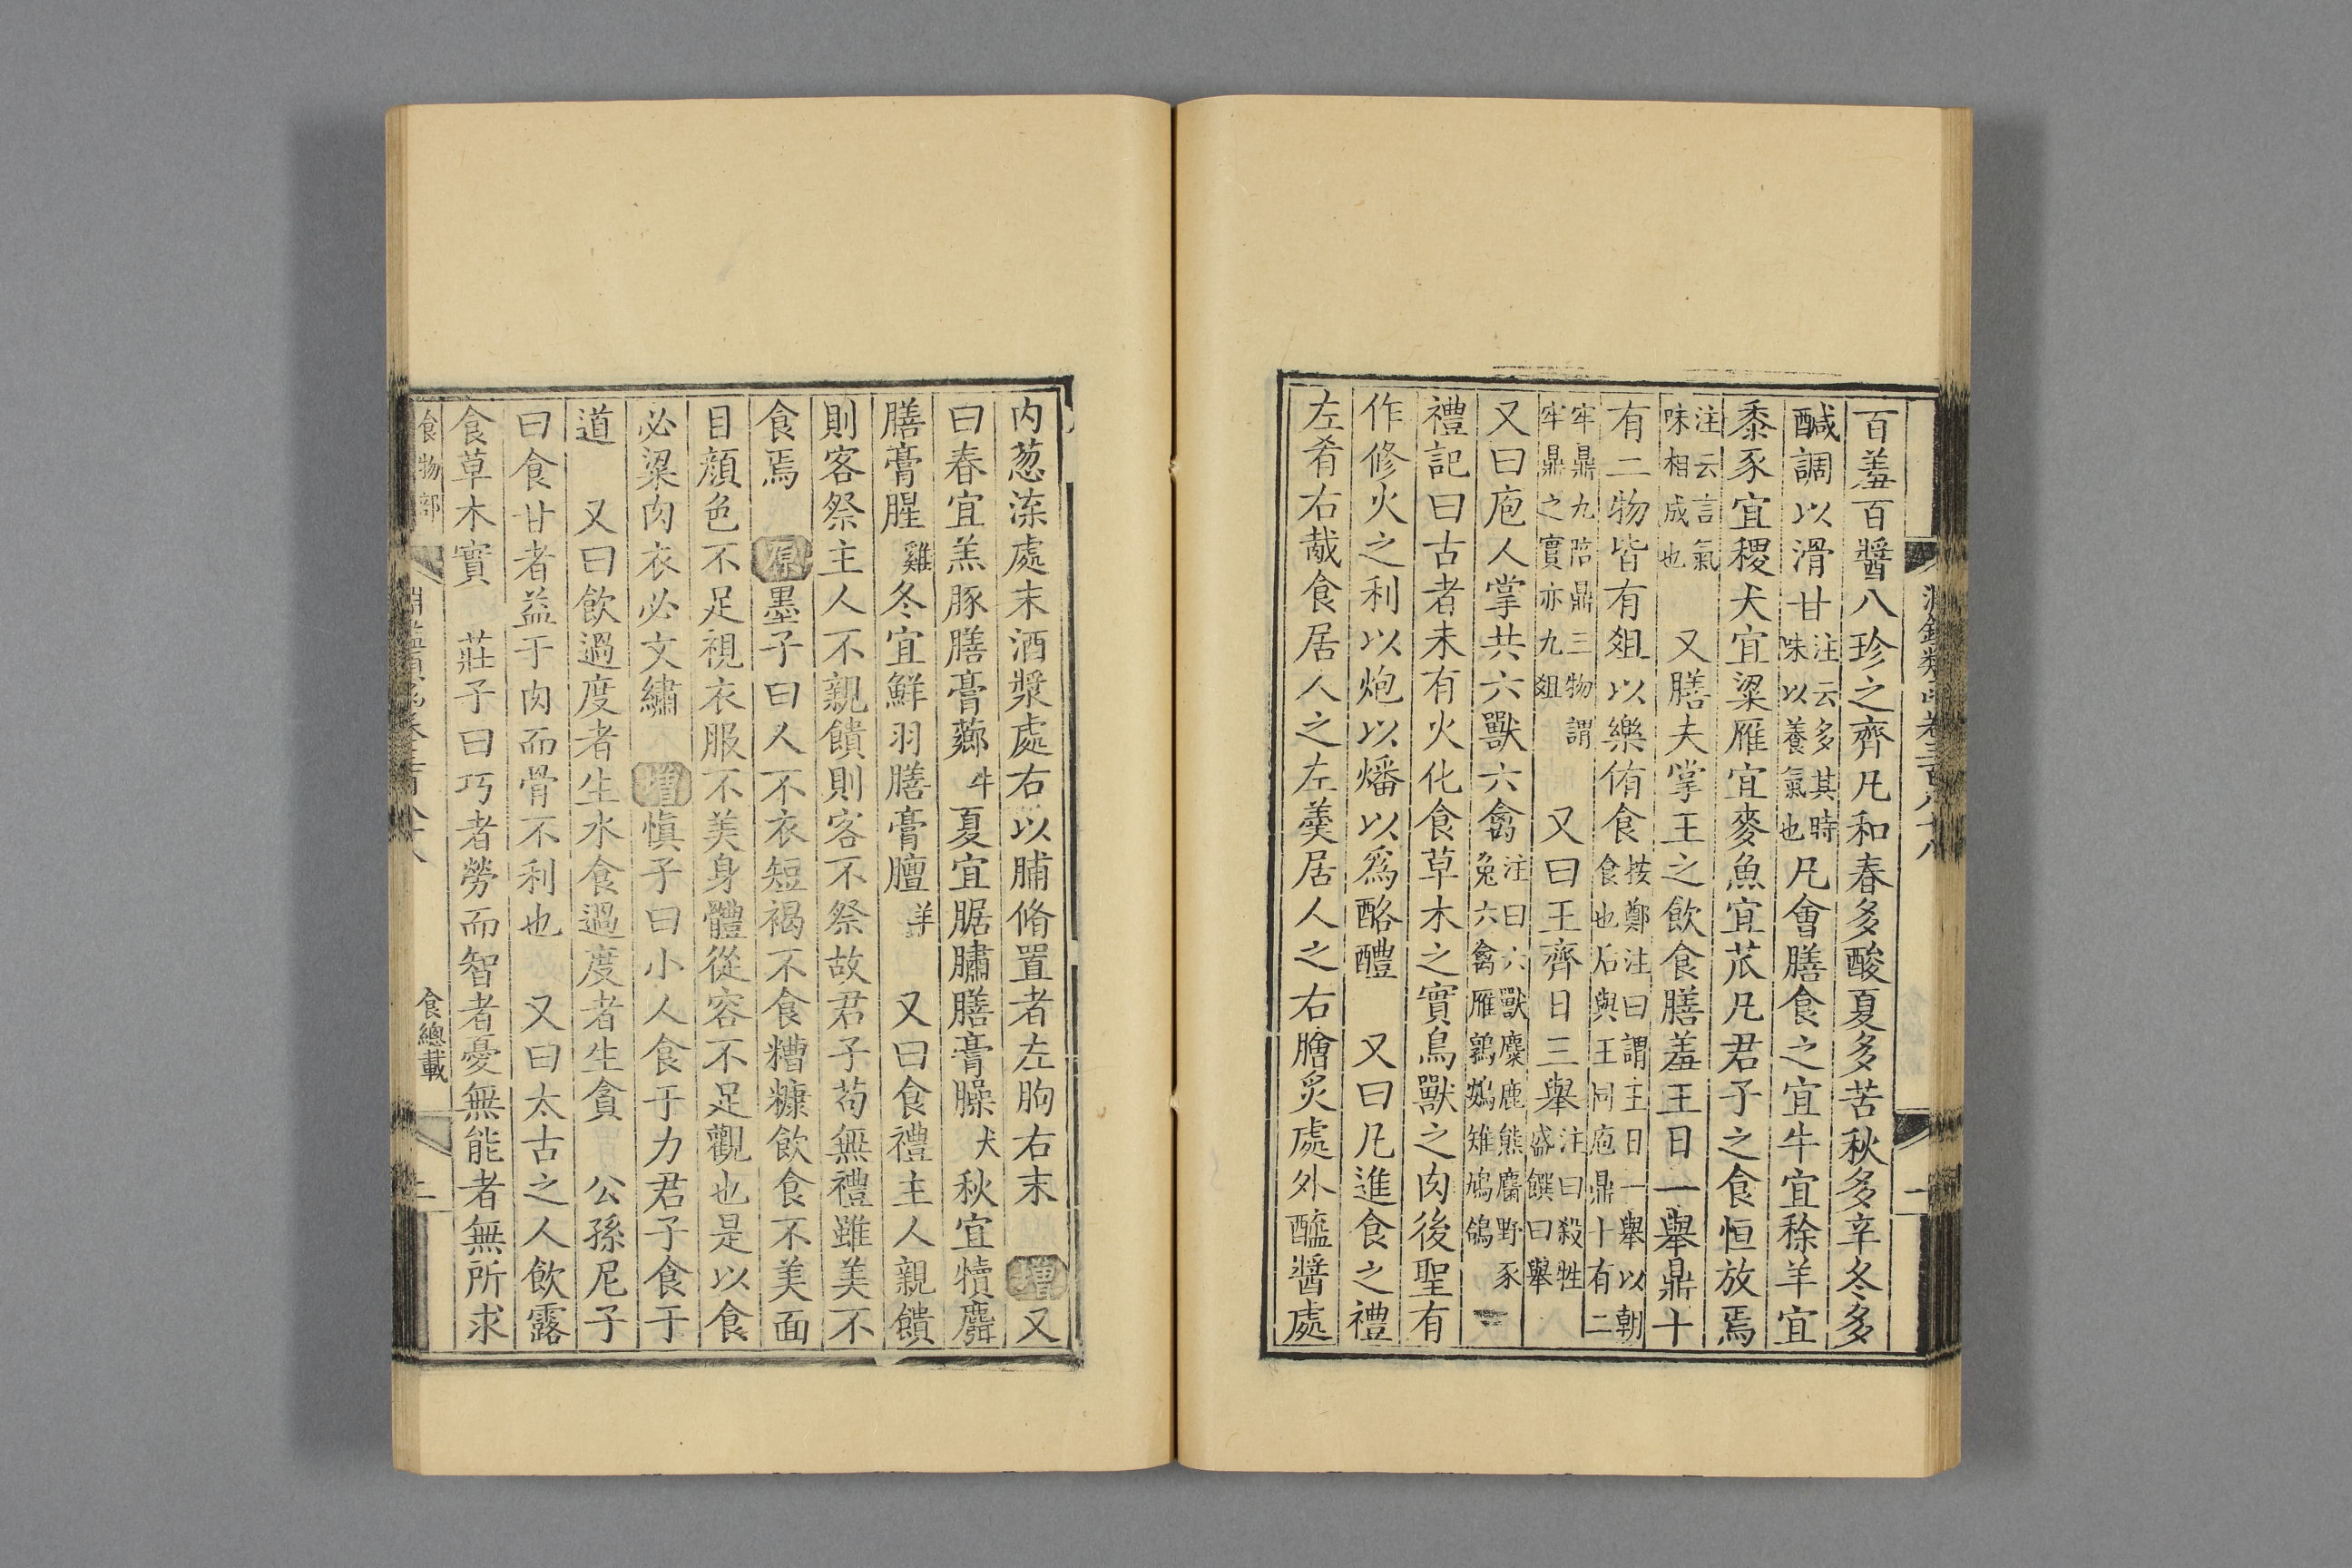 百羞百醬八珍之齊凡和春多酸夏多苦秋多辛冬多
醎調以滑甘注云多其時味以養氣也凡會膳食之宜牛宜稌羊宜
黍豕宜稷犬宜粱雁宜麥魚宜苽凡君子之食恒放焉
注云言氣味相成也 又膳夫掌王之飲食膳羞王日一舉鼎十
有二物皆有俎以樂侑食按鄭注曰謂主日一舉以朝食也后與王同庖鼎十有二
牢鼎九陪鼎三物謂牢鼎之實亦九俎 又曰王齊日三舉注曰殺牲盛饌曰舉
又曰庖人掌共六獸六禽注曰六獸麋鹿熊麕野豕兔六禽雁鶉鷃雉鳩鴿
禮記曰古者未有火化食草木之實鳥獸之肉後聖有
作修火之利以炮以燔以爲酩醴 又曰凡進食之禮
左肴右胾食居人之左羹居人之右膾炙處外醯醬處
内葱渫處末酒漿處右以脯脩置者左朐右末 增又
曰春宜羔豚膳膏薌牛夏宜腒鱐膳膏臊犬秋宜犢麛
膳膏腥雞冬宜鮮羽膳膏膻羊 又曰食禮主人親饋
則客祭主人不親饋則客不祭故君子苟無禮雖美不
食焉 原墨子曰人不衣短褐不食糟糠飲食不美面
目顔色不足視衣服不美身體從容不足觀也是以食
必粱肉衣必文繡 增慎子曰小人食于力君子食于
道 又曰飲過度者生水食過度者生貪 公孫尼子
曰食甘者益于肉而骨不利也 又曰太古之人飲露
食草木實 莊子曰巧者勞而智者憂無能者無所求
食物部
食總載
二